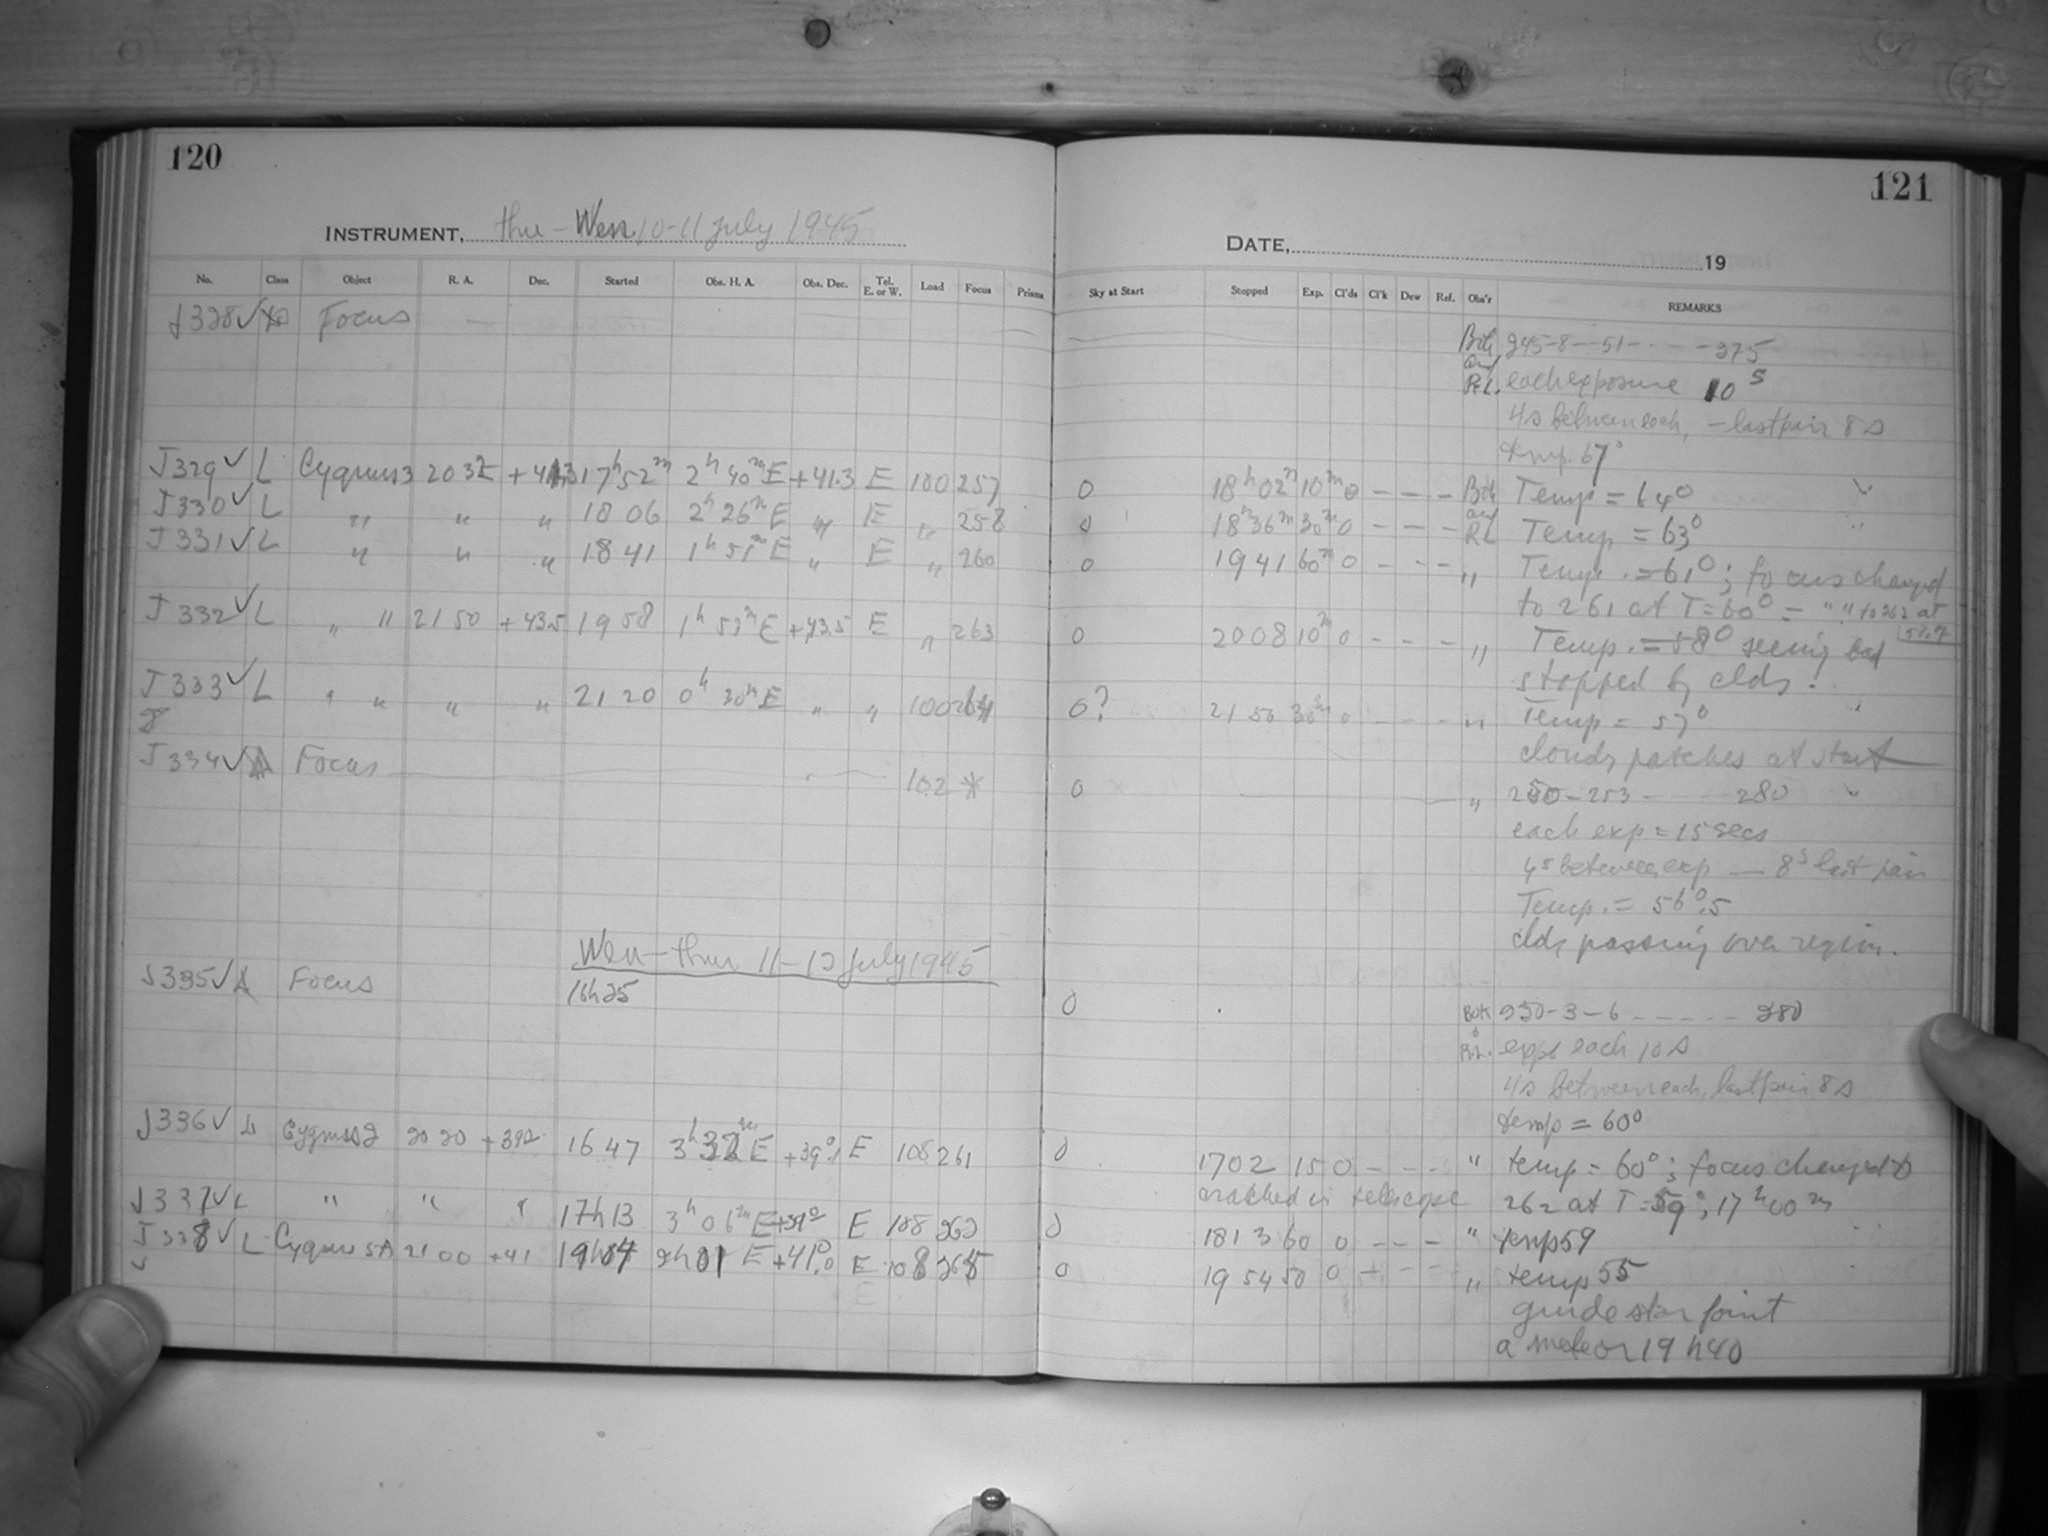 120
INSTRUMENT, thu - Wen 10-11 July 1945
No. Class Object R. A. Dec. Started Obs. H. A. Obs. Dec. Tel. E. or W. Load Focus Prisms
J328 ✓ Focus
J329 ✓ L Cygnus 3 20 32 + 41.3 17h 52m 2h 40m E +41.3 E 100 257
J330 ✓ L " " " 18 06 2h 26m E " E " 258
J331 ✓ L " " " 18 41 1h 51m E " E " 260
J332 ✓ L " " 21 50 +43.5 19 58 1h 52m E +43.5 E " 263
J333 ✓ L " " " " 21 20 0h 30m E " " 100 264
J334 ✓ A Focus 102 *
Wen - thur 11-12 July 1945
J335 ✓ A Focus 16h25
J336 ✓ L Cygnus 2 20 20 +39.2 16 47 3h 32m E +39°.1 E 108 261
J337 ✓ L " " " 17h13 3h 06m E +39° E 108 262
J338 ✓ L Cygnus 5A 21 00 +41 19h04 2h01 E +41°.0 E 108 265
121
DATE, 19
Sky at Start Stopped Exp. Cl'ds Cl'k Dew Ref. Obs'r REMARKS
Bok and R.L. 245-8--51-----275
each exposure 10 s
4s between each, - last pair 8 s
temp. 67°
0 18h 02m 10m 0 - - - Bok Temp = 64°
0 18h 36m 30m 0 - - - and RL Temp = 63°
0 19 41 60m 0 - - - " Temp. = 61°; focus changed
to 261 at T=60° = " " to 262 at
0 20 08 10m 0 - - - " Temp. = 58° seeing bad
stopped by clds.
0? 21 50 30m 0 - - - " Temp = 57°
clouds patches at start
0 " 250-253 - 280
each exp = 15 secs
4s between exp — 8s last pair
Temp. = 56°.5
clds passing over region.
0 Bok & R.L. 250-3-6 ------ 280
exps each 10 s
4s between each, last pair 8 s
temp = 60°
0 1702 15 0 - - - " temp = 60°; focus changed to
cracked in telescope 262 at T=59°; 17h 00m
0 1813 60 0 - - - " temp 59
0 19 54 50 0 - - - " temp 55
guide star faint
a meteor 19h40